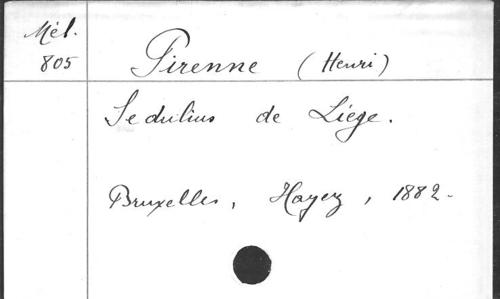 Mél.
805
Pirenne (Henri)
Sedulius de Liége.
Bruxelles, Hayez, 1882.